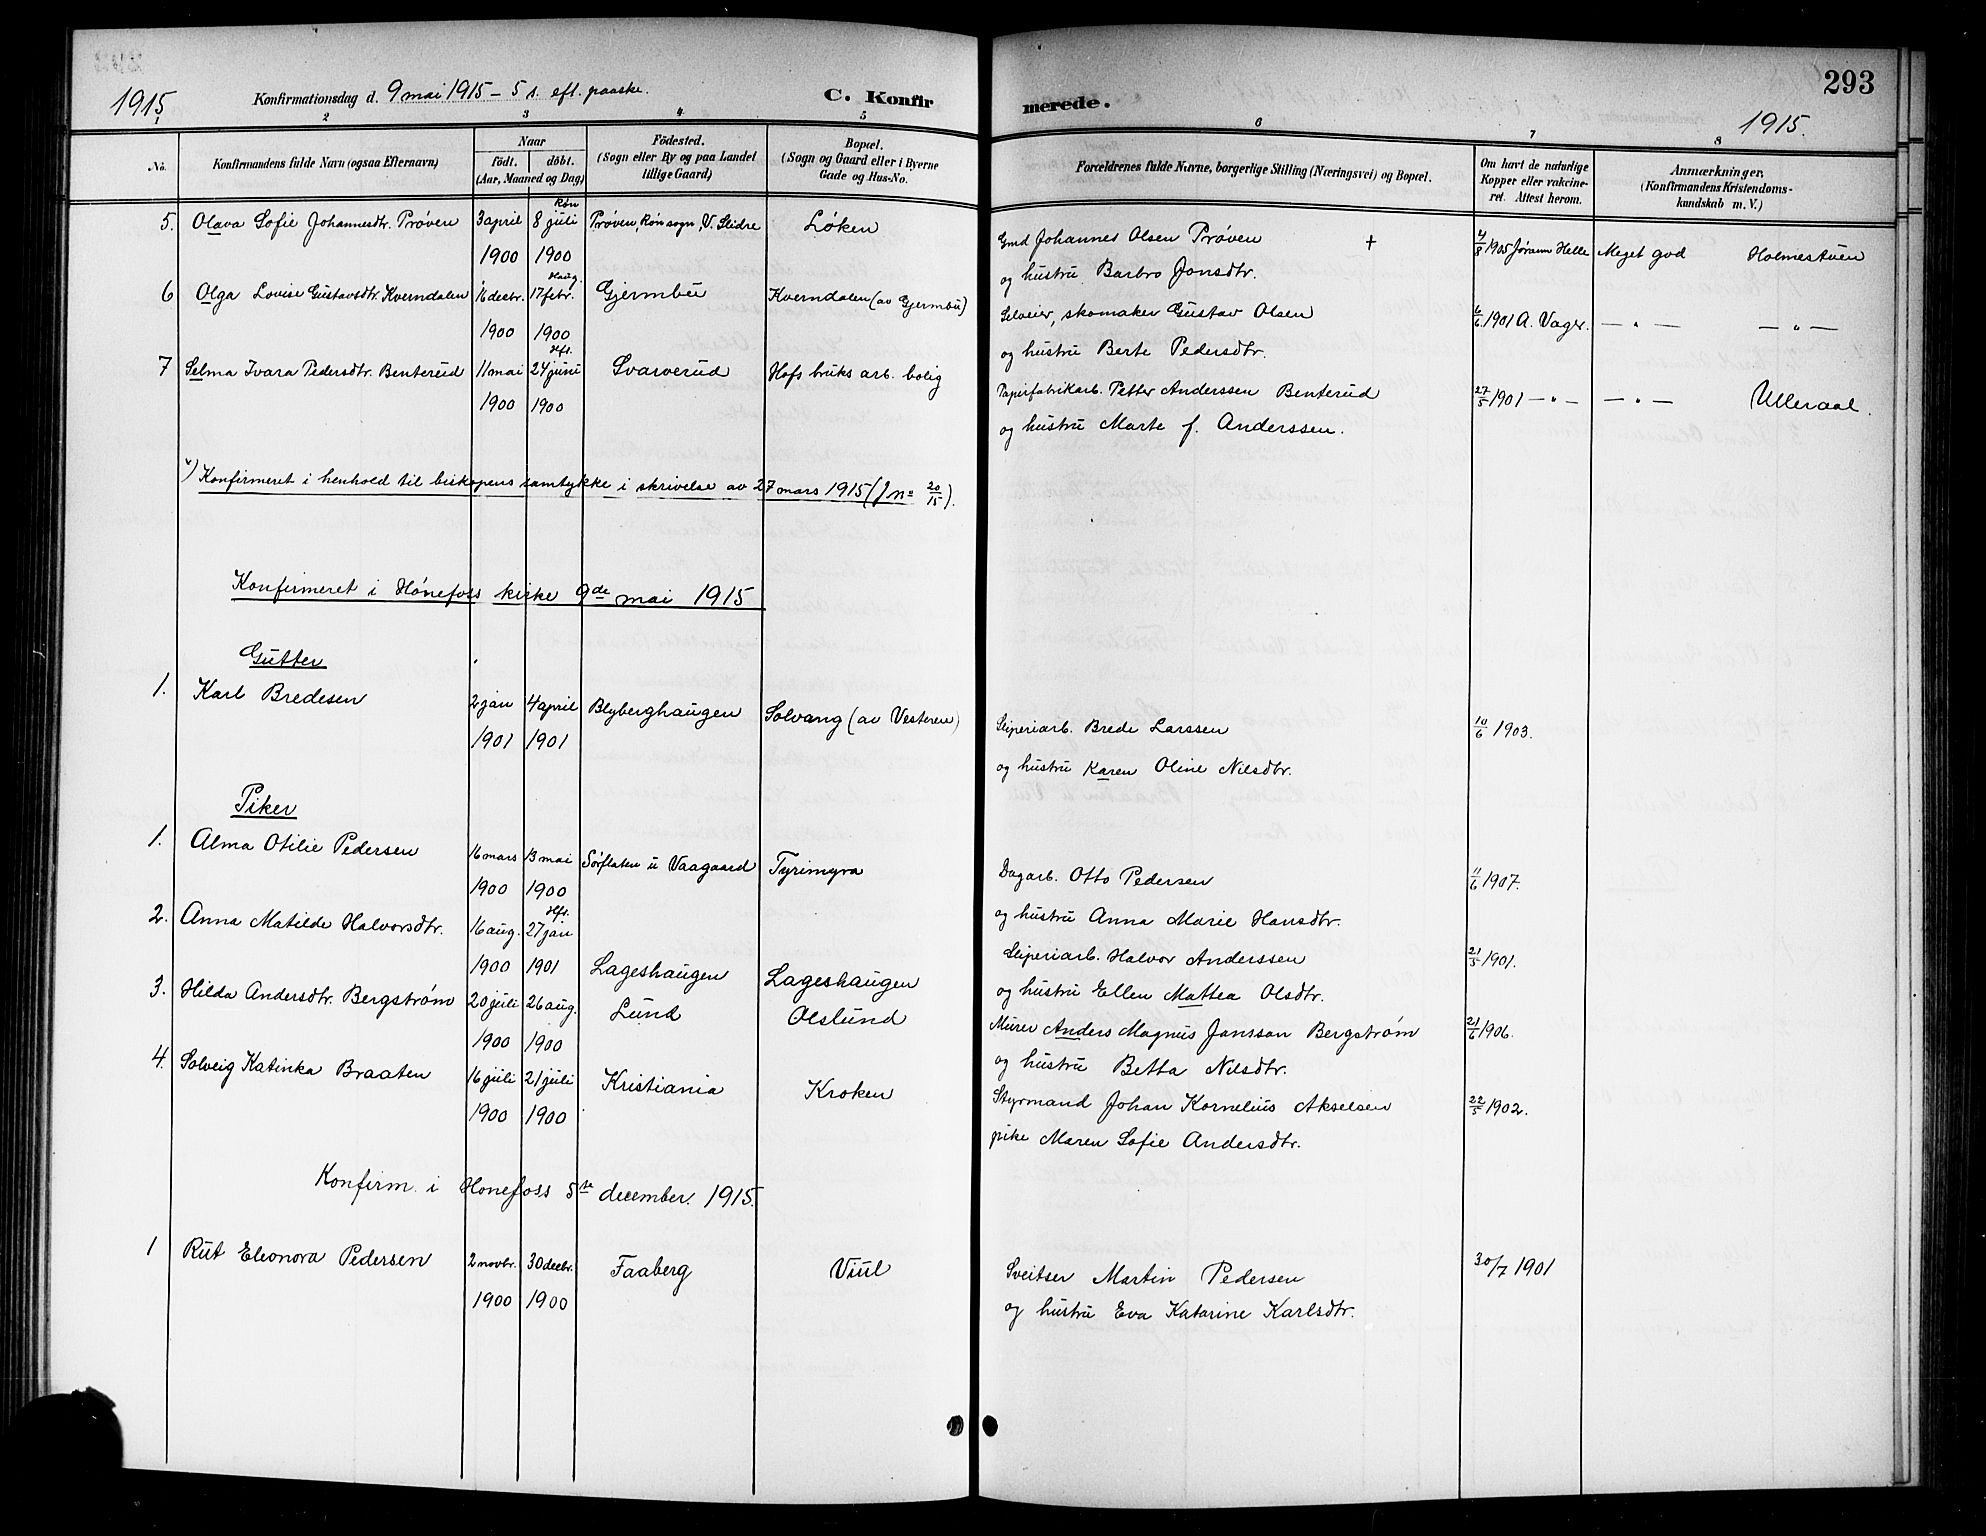 1915
Konfirmationsdag d. 9 mai 1915 – 5 s. eft. paaske.
C. Konfir
merede.
293
1915.
1 2 3 4 5 6 7 8
No.
Konfirmandens fulde Navn (ogsaa Efternavn)
Naar
födt. döbt.
(Aar, Maaned og Dag)
Födested.
(Sogn eller By og paa Landet
tillige Gaard)
Bopæl.
(Sogn og Gaard eller i Byerne
Gade og Hus-No.
Forældrenes fulde Navne, borgerlige Stilling (Næringsvei) og Bopæl.
Om havt de naturlige
Kopper eller vakcine-
ret. Attest herom.
Anmærkninger.
(Konfirmandens Kristendoms-
kundskab m. V.)
Røn
5. Olava Sofie Johannesdtr. Prøven 3 april 8 juli Prøven, Røn sogn, V. Slidre Løken
1900 1900
Gmd Johannes Olsen Prøven + 4/8 1905 Jørann Helle Meget god Holmestuen
og hustru Barbro Jonsdtr.
Haug
6 Olga Lovise Gustavsdtr. Kverndalen 16 decbr. 17 febr. Gjermbu Kverndalen (av Gjermbu)
1900 1900
Selveier, skomaker Gustav Olsen 6/6 1901 A. Vager. — „ — — „ —
og hustru Berte Pedersdtr.
Hft.
7 Selma Ivara Pedersdtr. Benterud 11 mai 24 juni Svarverud Hofs bruks arb. bolig
1900 1900
Papirfabrikarb. Petter Anderssen Benterud 27/5 1901 — „ — — „ — Ulleraal.
og hustru Marte f. Anderssen.
*) Konfirmeret i henhold til biskopens samtykke i skrivelse av 27 mars 1915 (J no 20/15).
Konfirmeret i Hønefoss kirke 9de mai 1915
Gutter
1. Karl Bredesen 2 jan 4 april Blyberghaugen Solvang (av Vesteren)
1901 1901
Sliperiarb. Brede Larssen 10/6 1903.
og hustru Karen Oline Nilsdtr.
Piker
1. Alma Otilie Pedersen 16 mars 13 mai Sørflaten u Vaagaard Tyrimyra
1900 1900
Dagarb. Otto Pedersen 11/6 1907.
og hustru Anna Marie Hansdtr.
Hft.
2. Anna Matilde Halvorsdtr. 16 aug. 27 jan
1900 1901 Lageshaugen Lageshaugen
Sliperiarb. Halvor Anderssen 21/5 1901.
og hustru Ellen Mattea Olsdtr.
3. Hilda Andersdtr. Bergstrøm 20 juli 26 aug. Lund Olslund
1900 1900
Murer Anders Magnus Jansson Bergstrøm 21/6 1906.
og hustru Betta Nilsdtr.
4. Solveig Katinka Braaten 16 juli 21 juli Kristiania Kroken
1900 1900
Styrmand Johan Kornelius Akselsen 22/5 1902.
pike Maren Sofie Andersdtr.
Konfirm. i Honefoss 5te december. 1915.
1 Rut Eleonora Pedersen 2 novbr. 30 decbr. Faaberg Viul
1900 1900
Sveitser Martin Pedersen 30/7 1901
og hustru Eva Katarine Karlsdtr.